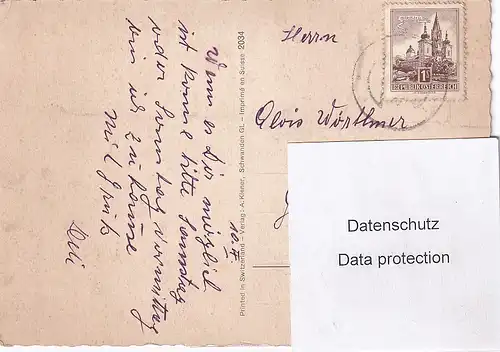 Wenn es Dir möglich
ist komme bitte Samstag
oder Sonntag Vormittag
bin ich zu Hause
mit Gruß
10. II.
Printed in Switzerland – Verlag: A. Kisner, Schwanden GL – Imprimé en Suisse 2034
REPUBLIK ÖSTERREICH
1S
Herrn
Alois
Datenschutz
Data protection